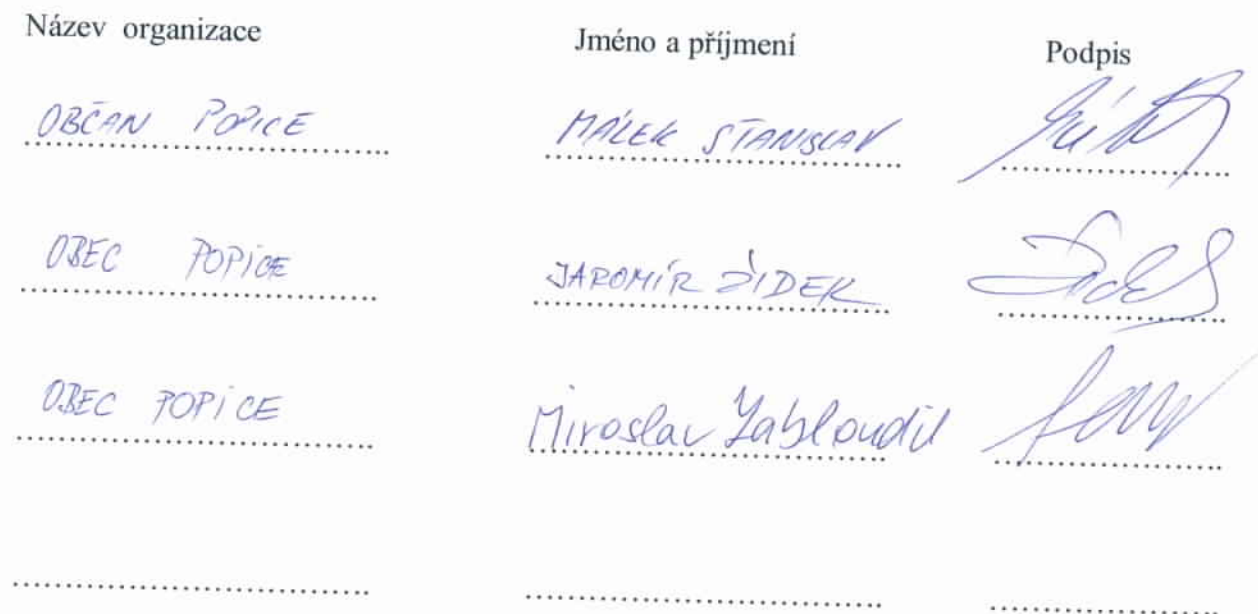 Název organizace Jméno a příjmení Podpis
OBČAN POPICE MÁLEK STANISLAV
OBEC POPICE JAROMÍR ŽIDEK
OBEC POPICE Miroslav Zabloudil